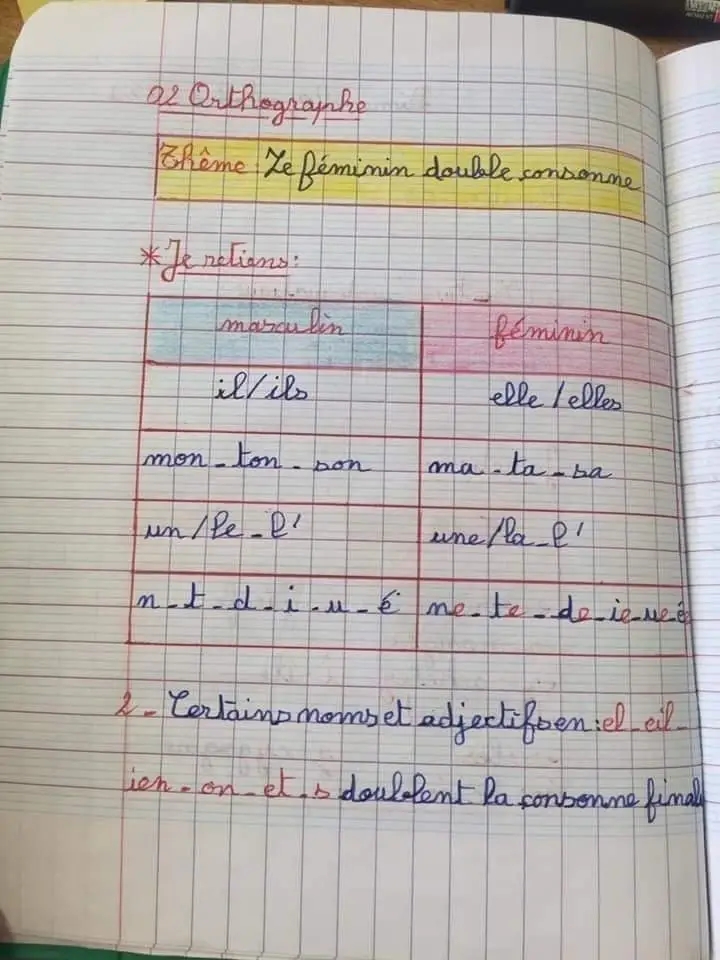 02 Orthographe
Thême : Le féminin double consonne
* Je retiens :
masculin féminin
il/ils elle/elles
mon - ton - son ma - ta - sa
un/le - l' une/la - l'
n - t - d - i - u - é ne - te - de - ie - ue - é
2 - Certains noms et adjectifs en : el - eil -
ien - on - et - s doublent la consonne final